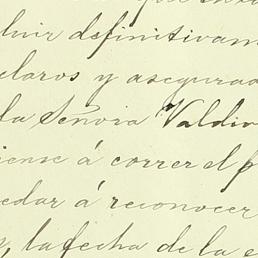 luir definitivam
claros y asegurad
la Señora Valdiv
iense á correr el p
edar á reconocer
, la fecha de la e